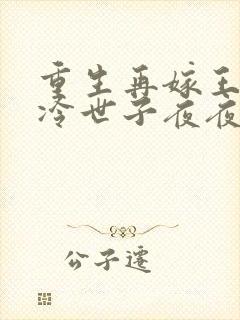 重生再嫁王
冷世子夜夜
公子遷